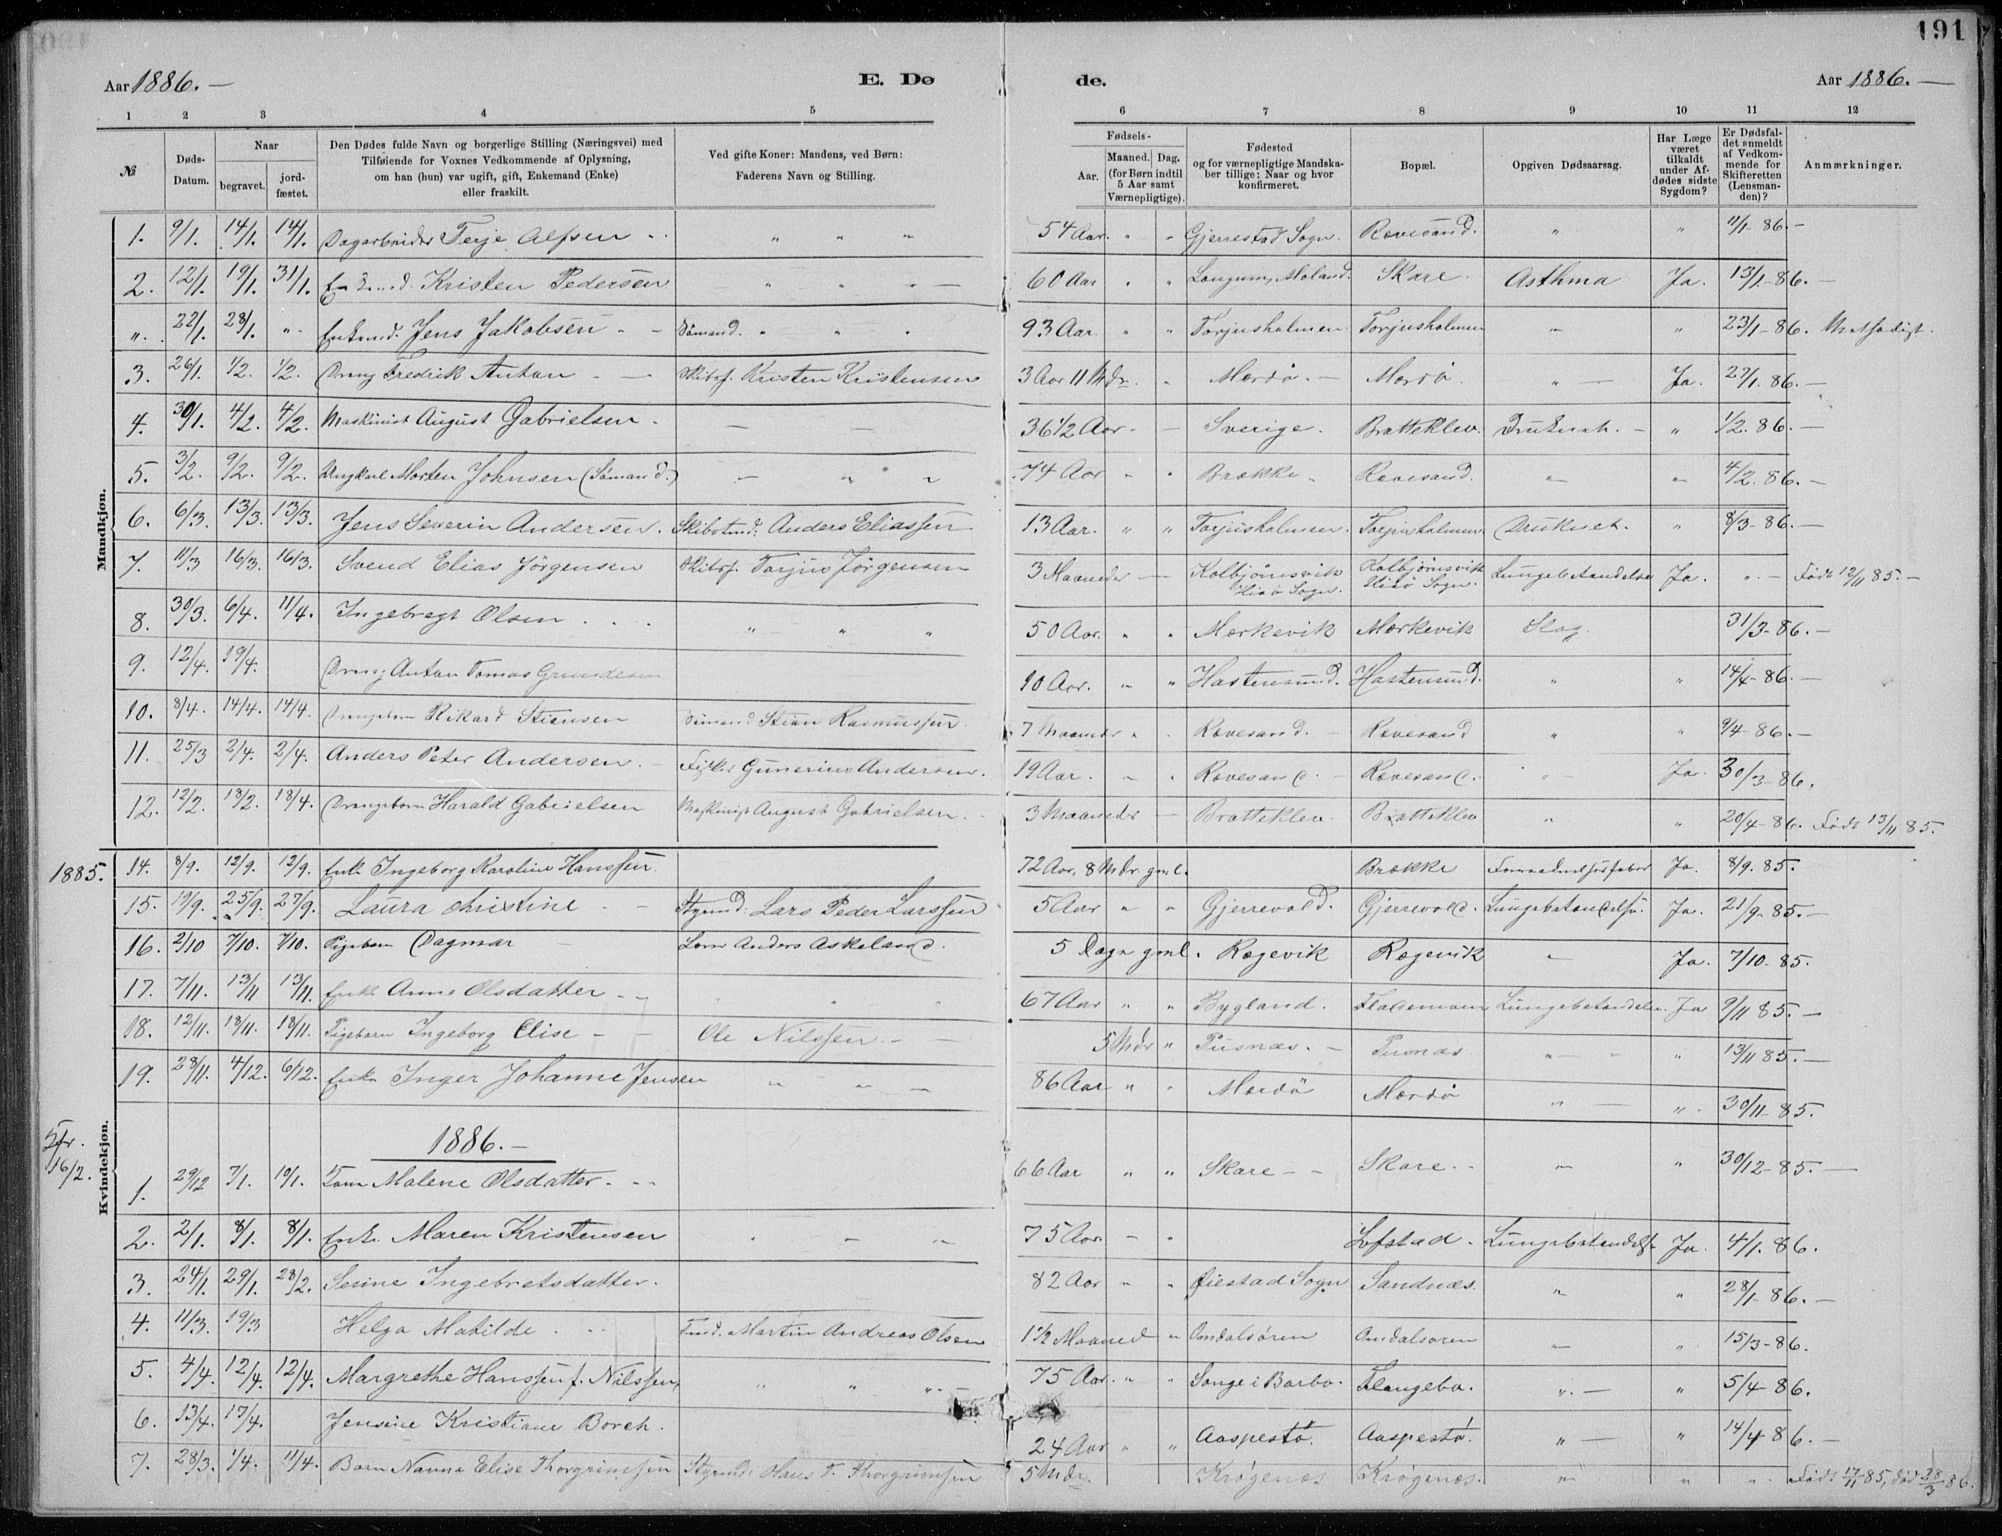 191
Aar 1886. —
E. Dø
de.
Aar 1886. —
1 2 3 4 5 6 7 8 9 10 11 12
№ Døds-Datum. Naar begravet. jord-fæstet. Den Dødes fulde Navn og borgerlige Stilling (Næringsvei) med Tilføiende for Voxnes Vedkommende af Oplysning, om han (hun) var ugift, gift, Enkemand (Enke) eller fraskilt. Ved gifte Koner: Mandens, ved Børn: Faderens Navn og Stilling. Fødsels- Aar. Maaned. Dag. (for Børn indtil 5 Aar samt Værnepligtige). Fødested og for værnepligtige Mandskaber tillige: Naar og hvor konfirmeret. Bopæl. Opgiven Dødsaarsag. Har Læge været tilkaldt under Afdødes sidste Sygdom? Er Dødsfaldet anmeldt af Vedkommende for Skifteretten (Lensmanden)? Anmærkninger.
Mandkjøn.
1. 9/1. 14/1. 14/1. Dagarbeider Terje Alfsen 54 Aar. Gjerrestad Sogn. Rævesand. 11/1-86.-
2. 12/1. 19/1. 31/1. Enkemd. Kristen Pedersen 60 Aar Longum, Moland. Skare. Asthma Ja. 13/1-86.-
". 22/1. 28/1. ". Enkemd. Jens Jakobsen Sømand. 93 Aar. Torjusholmen Torjusholmen 23/1-86.
3. 26/1. 1/2. 1/2. Dreng Fredrik Anton Skibsf. Kristen Kristensen 3 Aar 11 Mdr. Mærdø. Mærdø. Ja. 27/1-86.-
4. 30/1. 4/2. 4/2. Maskinist August Gabrielsen. 36 1/2 Aar. Sverige. Bratteklev. Druknet. " 1/2. 86.-
5. 3/2. 9/2. 9/2. Ungkarl Morten Johnsen (Sømand.) 74 Aar Brække. Rævesand. 4/2. 86.-
6. 6/3. 13/3. 13/3. Jens Severin Andersen. Skibstmd. Anders Eliassen 13 Aar. Torjusholmen. Torjusholmen. Druknet. " 8/3-86.-
7. 11/3 16/3. 16/3. Svend Elias Jörgensen Skibsf. Torjus Jörgensen 3 Maaneder Kolbjørnsvik Hisø Sogn. Kolbjørnsvik Hisø Sogn. Lungebetændelse Ja. ".- Født 12/11 85.-
8. 30/3. 6/4. 11/4. Ingebregt Olsen 50 Aar. Mærkevik Mærkevik Slag. 31/3-86.-
9. 12/4. 19/4. Dreng Anton Tomas Grundesen 10 Aar. Hastensund. Hastensund. 14/4-86.-
10. 8/4. 14/4. 14/4. Drengebarn Rikard Stiansen Sømand Stian Rasmussen 7 Maaneder Rævesand. Rævesand 9/4-86.-
11. 25/3 2/4. 2/4. Anders Peter Andersen. Fisker Gunerius Andersen. 19 Aar. Rævesand. Rævesand. Ja. 30/3-86.
12. 12/2. 18/2. 18/4. Drengebarn Harald Gabrielsen Maskinist August Gabrielsen. 3 Maaneder Bratteklev. Bratteklev 20/4-86. Født 13/11 85.
1885.
Kvindekjøn.
14. 8/9. 12/9. 12/9. Enke Ingeborg Karoline Hanssen. 72 Aar, 8 Mdr. gml. Brække Ja. 8/9. 85.
15. 19/9. 25/9. 27/9. Laura Christine Styrmd: Lars Peder Larssen 5 Aar Gjerrevold. Gjerrevold. Lungebetændelse. Ja. 21/9-85.-
16. 2/10 7/10. 7/10. Pigebarn Dagmar Lærer Anders Askeland. 5 Dage gml. Rægevik Rægevik Ja. 7/10-85.
17. 7/11. 13/11 13/11. Enke Anne Olsdatter 67 Aar Bygland. Flademoen Lungebetændelse. Ja 9/11 85.-
18. 12/11. 18/11. 18/11. Pigebarn Ingeborg Elise Ole Nilssen. 5 Mdr Pusnæs. Pusnæs 13/11 85.-
19. 28/11. 4/12. 6/12. Enke Inger Johanne Jensen 86 Aar Mærdö Mærdø 30/11-85.
16/2.
1886.-
1. 29/12 7/1. 10/1. Malene Olsdatter. 66 Aar Skare Skare 30/12-85.-
2. 2/1. 8/1. 8/1. Enke. Maren Kristensen 75 Aar Lofstad. Lungebetændelse Ja. 4/1.86.
3. 24/1. 29/1. 28/2. Serine Ingebretsdatter. 82 Aar Øiestad Sogn Sandnæs. 28/1-86.-
4. 11/3. 19/3 Helga Matilde. Tmd. Martin Andreas Olsen 1 1/2 Maaned Omdalsøren Omdalsøren 15/3-86.
5. 4/4. 12/4. 12/4. Margrethe Hanssen f. Nilssen, 75 Aar. Songe i Barbo. Flangebo. 5/4-86.
6. 13/4. 17/4. Jensine Kristiane Borch. 24 Aar Aaspestø. Aaspestø. 14/4-86.-
7. 28/3. 1/4. 11/4. Barn Nanna Elise Thorgrimsen Styrmd: Hans T. Thorgrimsen 5 Mdr. Krøgenæs Krøgenæs. Født 17/11 85, død 28/3 86.